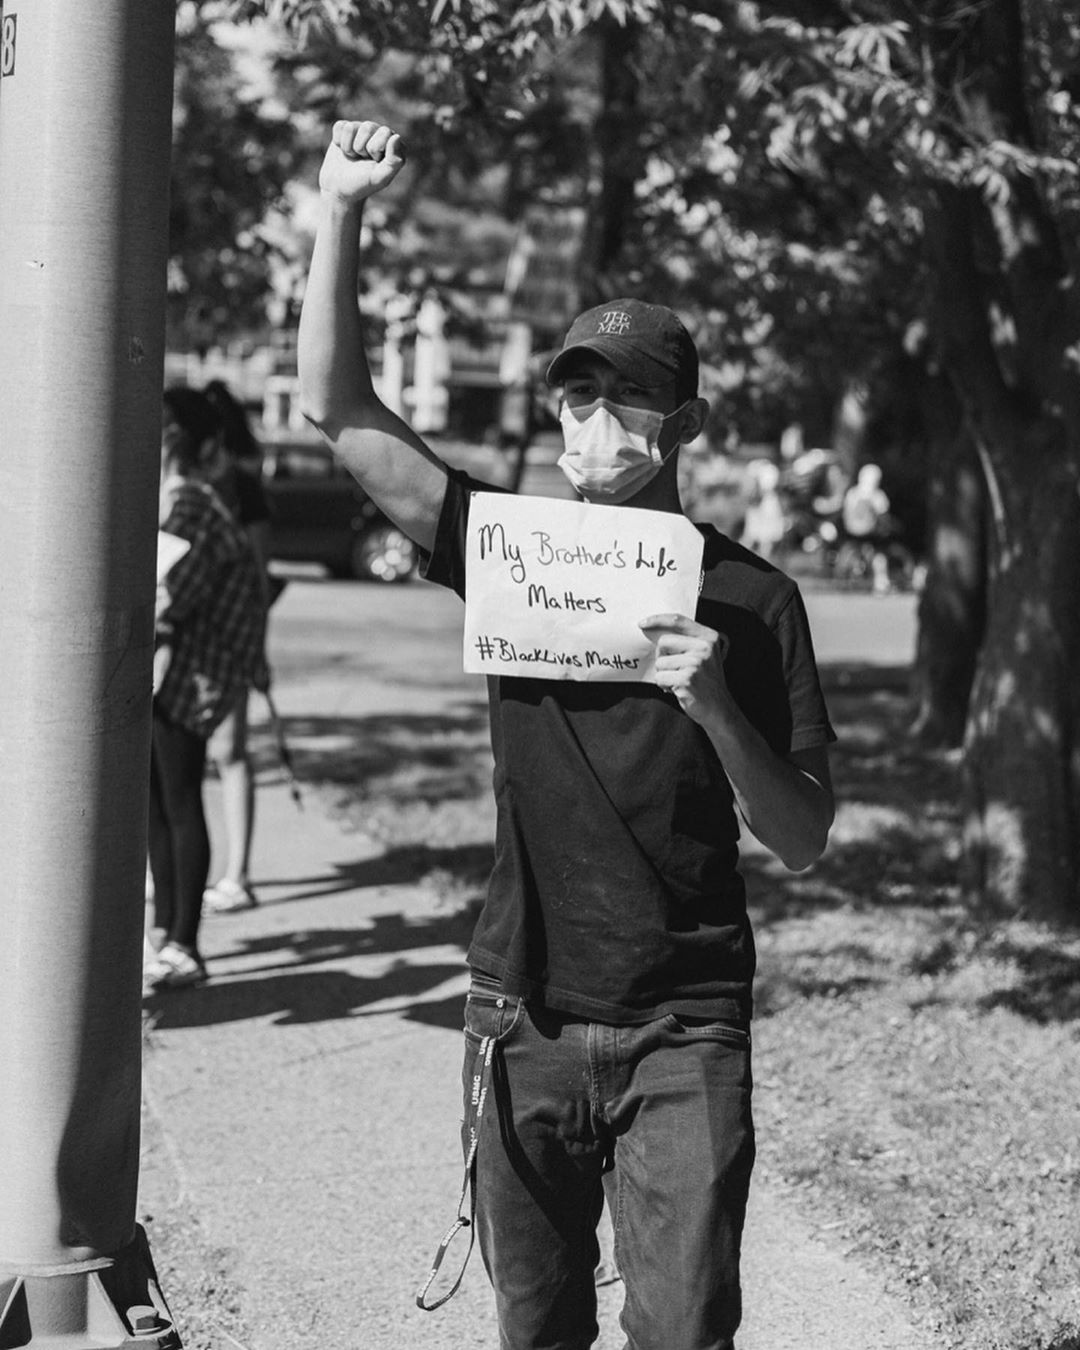 8
THE
MET
My Brother's Life
Matters
#BlackLivesMatter
USMC